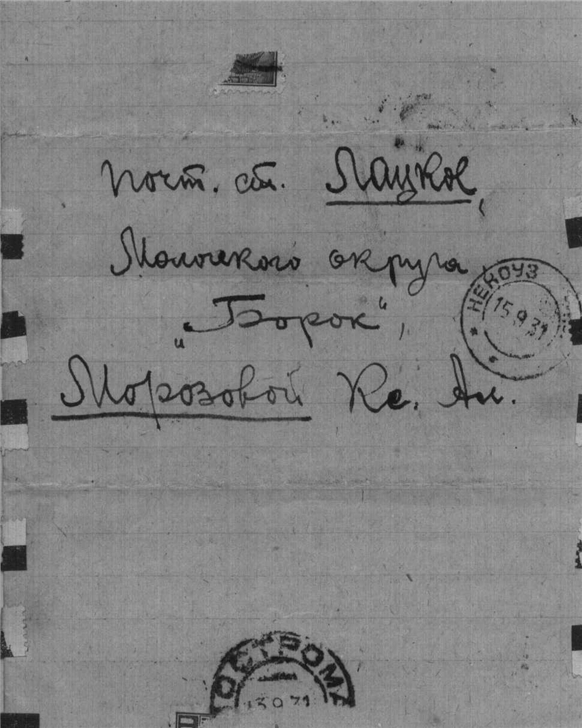 Почт. ст. Лацкое,
Мологского округа
„Борок“,
Морозовой Кс. Ал.
НЕКОУЗ
15.9.31
КОСТРОМА